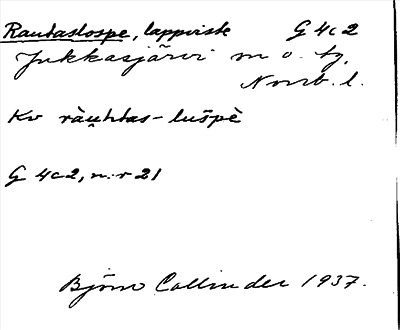 Rautaslospe, lappviste G 4c2
Jukkasjärvi m o. tg.
Norrb. l.
Kv ràu̯htas-lušpè
G 4c2, n:r 21
Björn Collinder 1937.